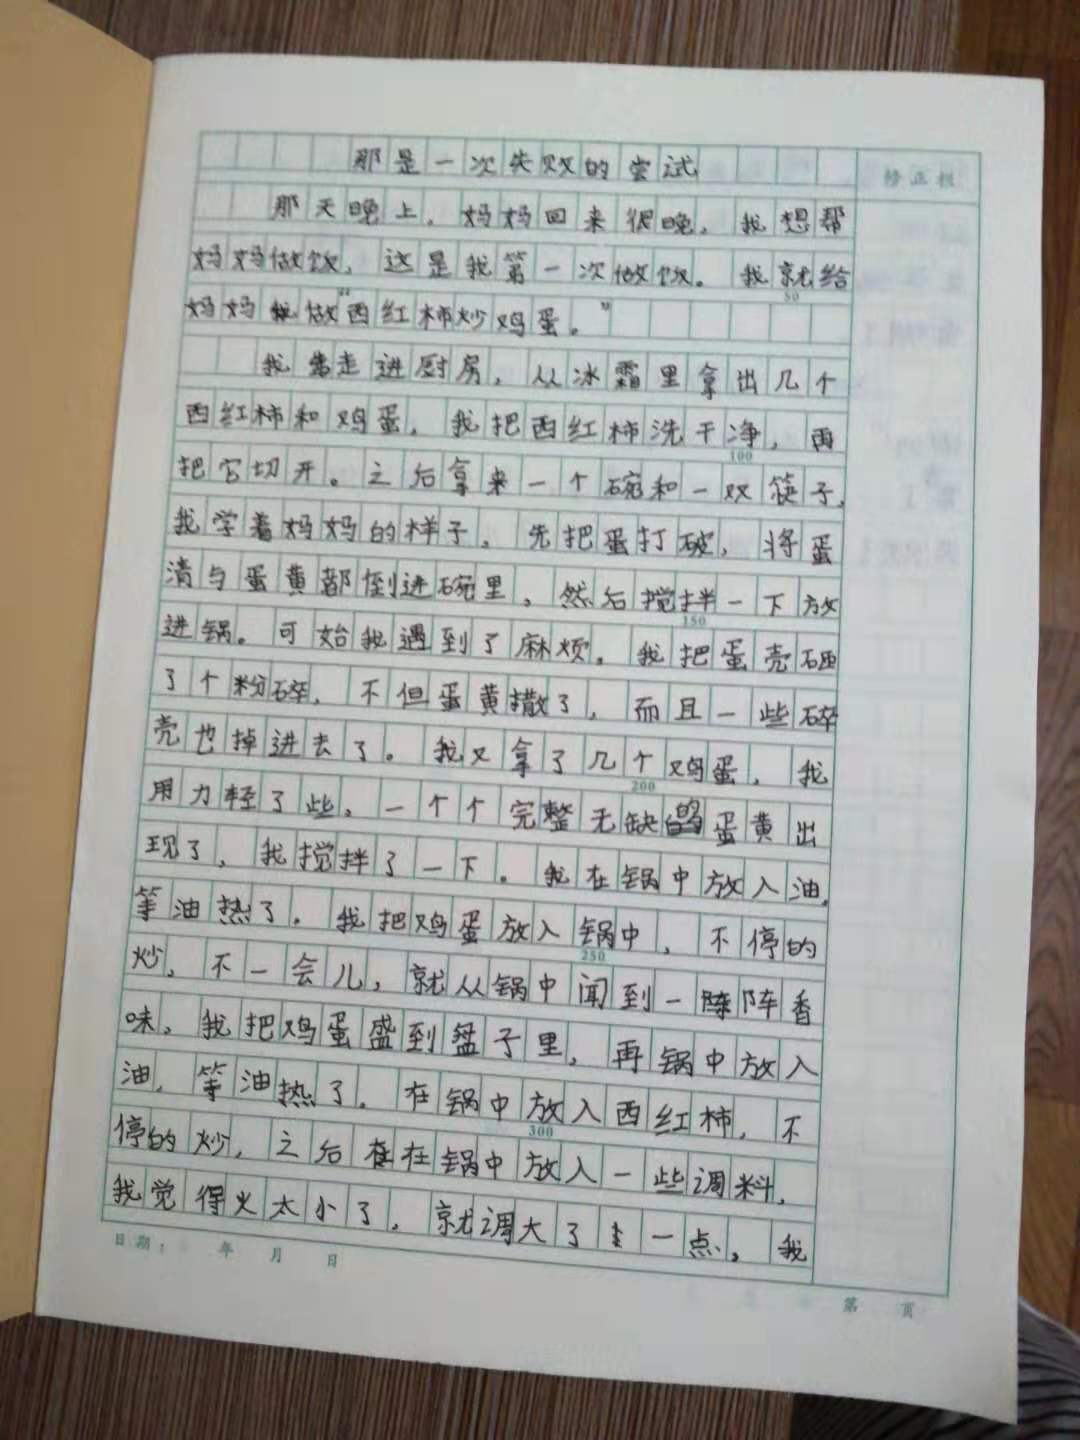 那是一次失败的尝试
修正栏
那天晚上，妈妈回来很晚，我想帮
妈妈做饭，这是我第一次做饭。我就给
50
妈妈做“西红柿炒鸡蛋。”
我走进厨房，从冰霜里拿出几个
西红柿和鸡蛋，我把西红柿洗干净，再
100
把它切开。之后拿来一个碗和一双筷子，
我学着妈妈的样子，先把蛋打破，将蛋
清与蛋黄都倒进碗里，然后搅拌一下放
150
进锅。可始我遇到了麻烦。我把蛋壳硒
了个粉碎，不但蛋黄撒了，而且一些碎
壳也掉进去了。我又拿了几个鸡蛋，我
200
用力轻了些，一个个完整无缺的蛋黄出
现了，我搅拌了一下。我在锅中放入油，
等油热了。我把鸡蛋放入锅中，不停的
250
炒，不一会儿，就从锅中闻到一阵阵香
味，我把鸡蛋盛到盘子里，再锅中放入
油，等油热了。在锅中放入西红柿，不
300
停的炒，之后在锅中放入一些调料，
我觉得火太小了，就调大了一点，我
日期： 年 月 日
第 页